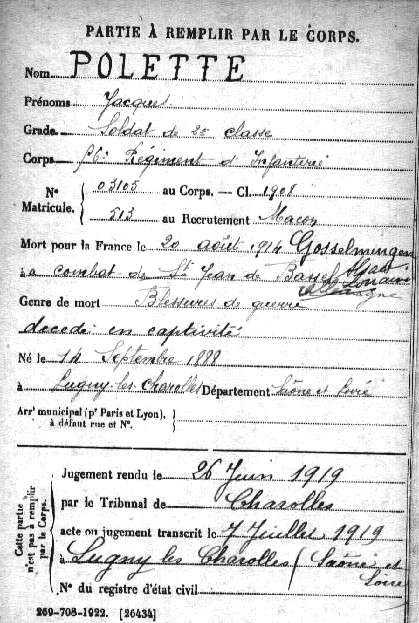 PARTIE À REMPLIR PAR LE CORPS.
Nom POLETTE
Prénoms Jacques
Grade Soldat de 2e classe
Corps 56e Régiment d'Infanterie
N° Matricule. { 03105 au Corps. — Cl. 1908
513 au Recrutement Macon
Mort pour la France le 20 août 1914 Gosselmingen
à a combat de St Jean de Bassel Alsace Lorraine
Genre de mort Blessures de guerre Allemagne
decedé en captivité
Né le 14 Septembre 1888
à Lugny-les-Charolles Département Saône et Loire
Arrt municipal (pr Paris et Lyon), à défaut rue et N°. }
Cette partie n'est pas à remplir par le Corps.
Jugement rendu le 26 Juin 1919
par le Tribunal de Charolles
acte ou jugement transcrit le 7 Juillet 1919
à Lugny les Charolles (Saône et Loire
N° du registre d'état civil
269-708-1922. [26434]